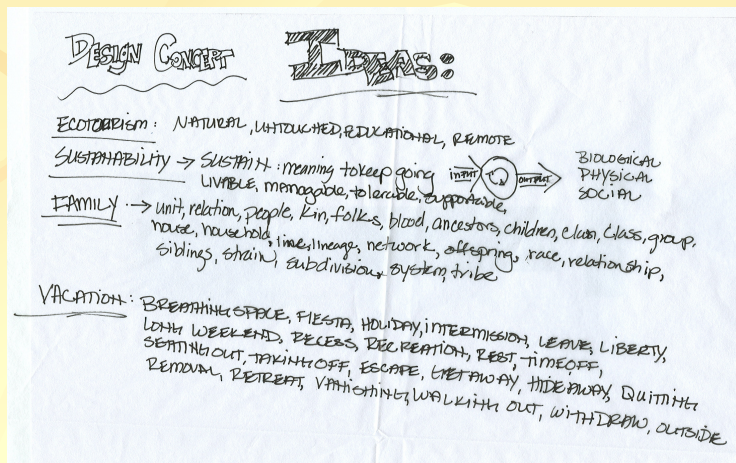 DESIGN CONCEPT IDEAS:
ECOTOURISM: NATURAL, UNTOUCHED, EDUCATIONAL, REMOTE
SUSTANABILITY → SUSTAIN: meaning to keep going
INPUT
OUTPUT
BIOLOGICAL
PHYSICAL
SOCIAL
LIVABLE, managable, tolerable, supportable,
FAMILY → unit, relation, people, kin, folks, blood, ancestors, children, clan, class, group,
house, household, line, lineage, network, offspring, race, relationship,
siblings, strain, subdivision, system, tribe
VACATION: BREATHING SPACE, FIESTA, HOLIDAY, INTERMISSION, LEAVE, LIBERTY,
LONG WEEKEND, RECESS, RECREATION, REST, TIMEOFF,
SEATING OUT, TAKING OFF, ESCAPE, GETAWAY, HIDEAWAY, QUITTING
REMOVAL, RETREAT, VANISHING, WALKING OUT, WITHDRAW, OUTSIDE